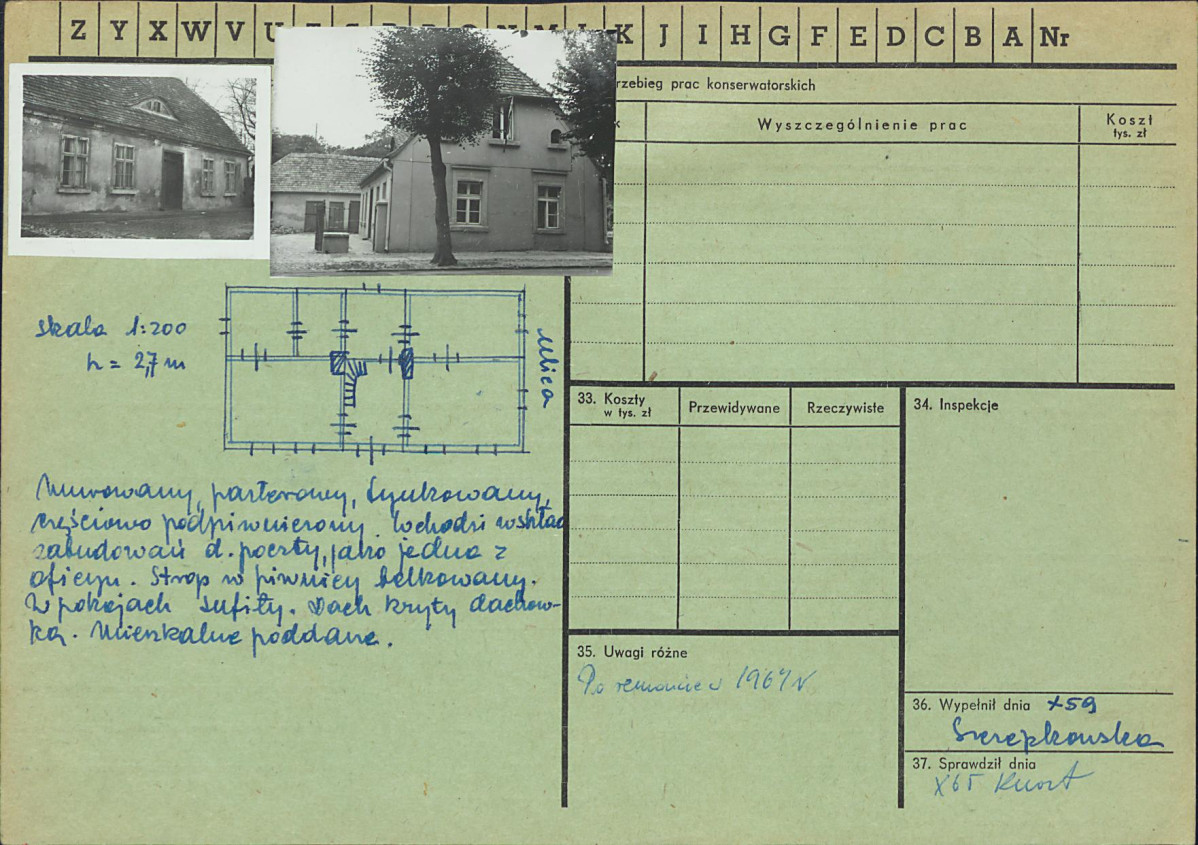 Z Y X W V U K J I H G F E D C B A Nr
rzebieg prac konserwatorskich
Wyszczególnienie prac
Koszt
tys. zł
skala 1:200
h = 2,7 m
ulica
Murowany, parterowy, tynkowany,
częściowo podpiwniczony. Wchodzi w skład
zabudowań d. poczty, jako jedna z
oficyn. Strop w piwnicy belkowany.
W pokojach sufity. Dach kryty dachów-
ką. Mieszkalne poddane.
33. Koszty
w tys. zł
Przewidywane
Rzeczywiste
34. Inspekcje
35. Uwagi różne
Po remoncie 1964 r
36. Wypełnił dnia X 59
37. Sprawdził dnia
X 65